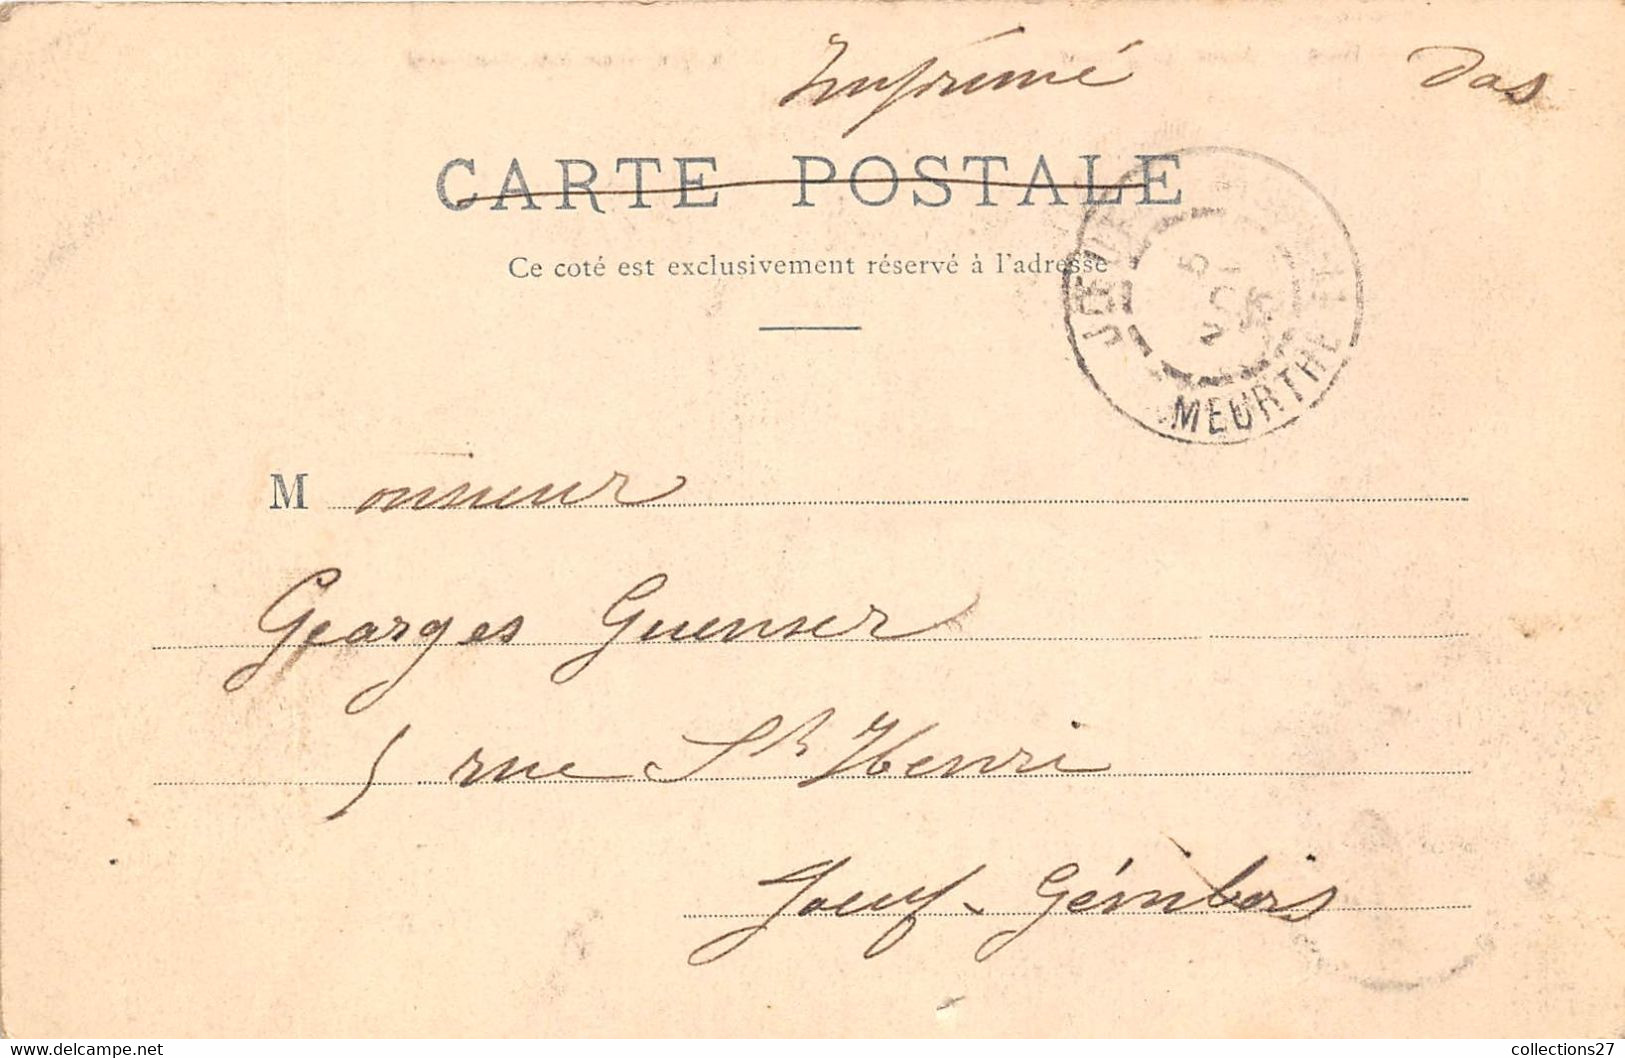 Imprimé Das
CARTE POSTALE
Ce coté est exclusivement réservé à l'adresse
MEURTHE
Monsieur
Georges Guenser
5 rue St Henri
Joeuf - Génibois
collections27